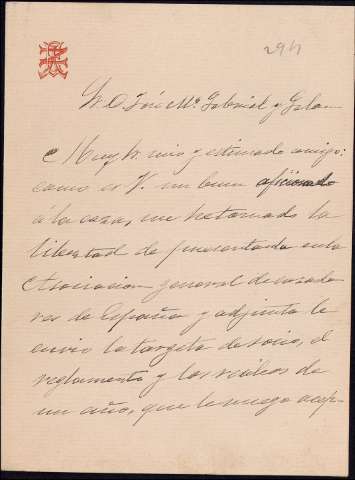 294
Sr. D. José Mª Gabriel y Galan
Muy Sr. mio y estimado amigo:
como es V. un buen aficionado
á la caza, me he tomado la
libertad de presentarlo en la
Asociacion general de cazado
res de España y adjunta le
envio la targeta de socio, el
reglamento y los recibos de
un año, que le ruego acep-